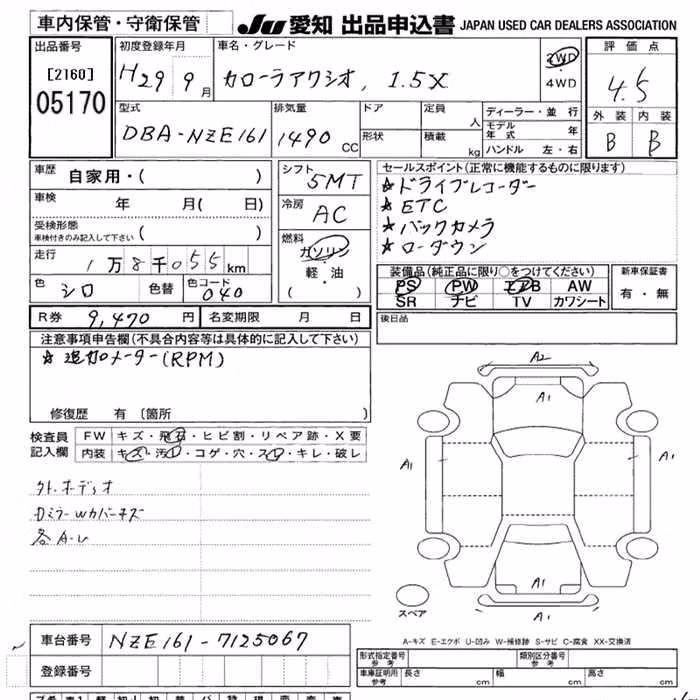 車内保管・守衛保管 JU 愛知 出品申込書 JAPAN USED CAR DEALERS ASSOCIATION
出品番号 [2160] 05170
初度登録年月 H29 9月
車名・グレード カローラアクシオ, 1.5X
2WD・4WD
評価点 4.5
外装 B 内装 B
型式 DBA-NZE161
排気量 1490 CC
ドア 形状
定員 人 積載 kg
ディーラー・並行
モデル年式 年
ハンドル 左・右
車歴 自家用・( )
車検 年 月( 日)
受検形態 車検付きのみ記入して下さい ( )
走行 1万8千055km
色 シロ 色替 色コード 040
シフト 5MT
冷房 AC
燃料 ガソリン・軽・油 ( )
セールスポイント(正常に機能するものに限ります)
★ドライブレコーダー
★ETC
★バックカメラ
★ローダウン
装備品(純正品に限り○をつけてください)
PS PW エアB AW
SR ナビ TV カワシート
新車保証書 有・無
R券 9,470円 名変期限 月 日
後日品
注意事項申告欄(不具合内容等は具体的に記入して下さい)
★追加メーター(RPM)
修復歴 有 〔箇所 〕
検査員記入欄
FW キズ・飛石・ヒビ割・リペア跡・X要
内装 キズ・汚レ・コゲ・穴・スレ・キレ・破レ
外オーディオ
DミラーWカバーキズ
各A-し
A2
A1
A1
A1
A1
A1
スペア
A-キズ E-エクボ U-凹み W-補修跡 S-サビ C-腐食 XX-交換済
車台番号 NZE161-7125067
登録番号
形式指定番号 参考 類別区分番号 参考
車庫証明用 参考 長さ cm 幅 cm 高さ cm